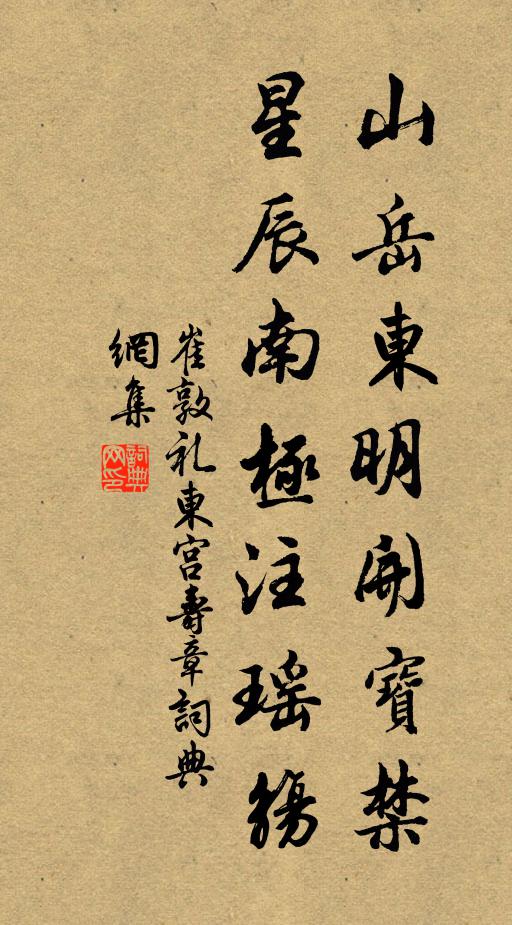 山岳東明開寶禁
星辰南極注瑶觴
崔敦礼東宫壽章詞典
網集
詞典
网印